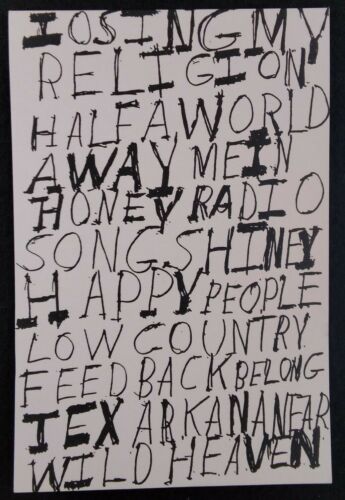 LOSING MY
RELIGION
HALF A WORLD
AWAY ME IN
HONEY RADIO
SONG SHINEY
HAPPY PEOPLE
LOW COUNTRY
FEEDBACK BELONG
TEXARKANA NEAR
WILD HEAVEN